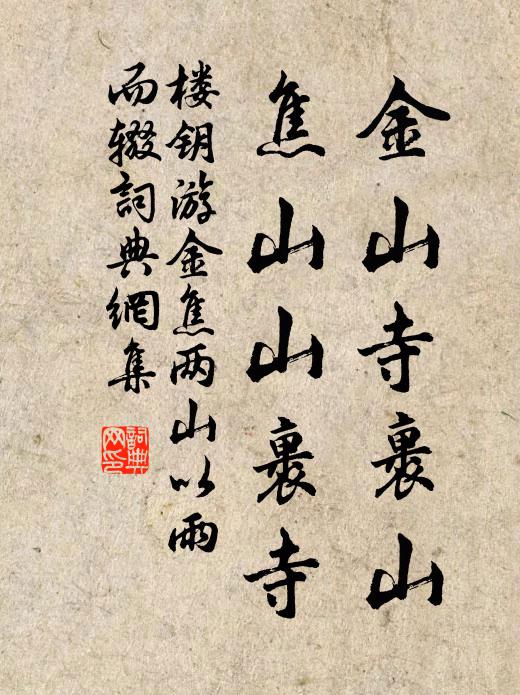 金山寺裹山
焦山山裹寺
楼钥游金焦两山以雨
而辍詞典網集
詞典網印